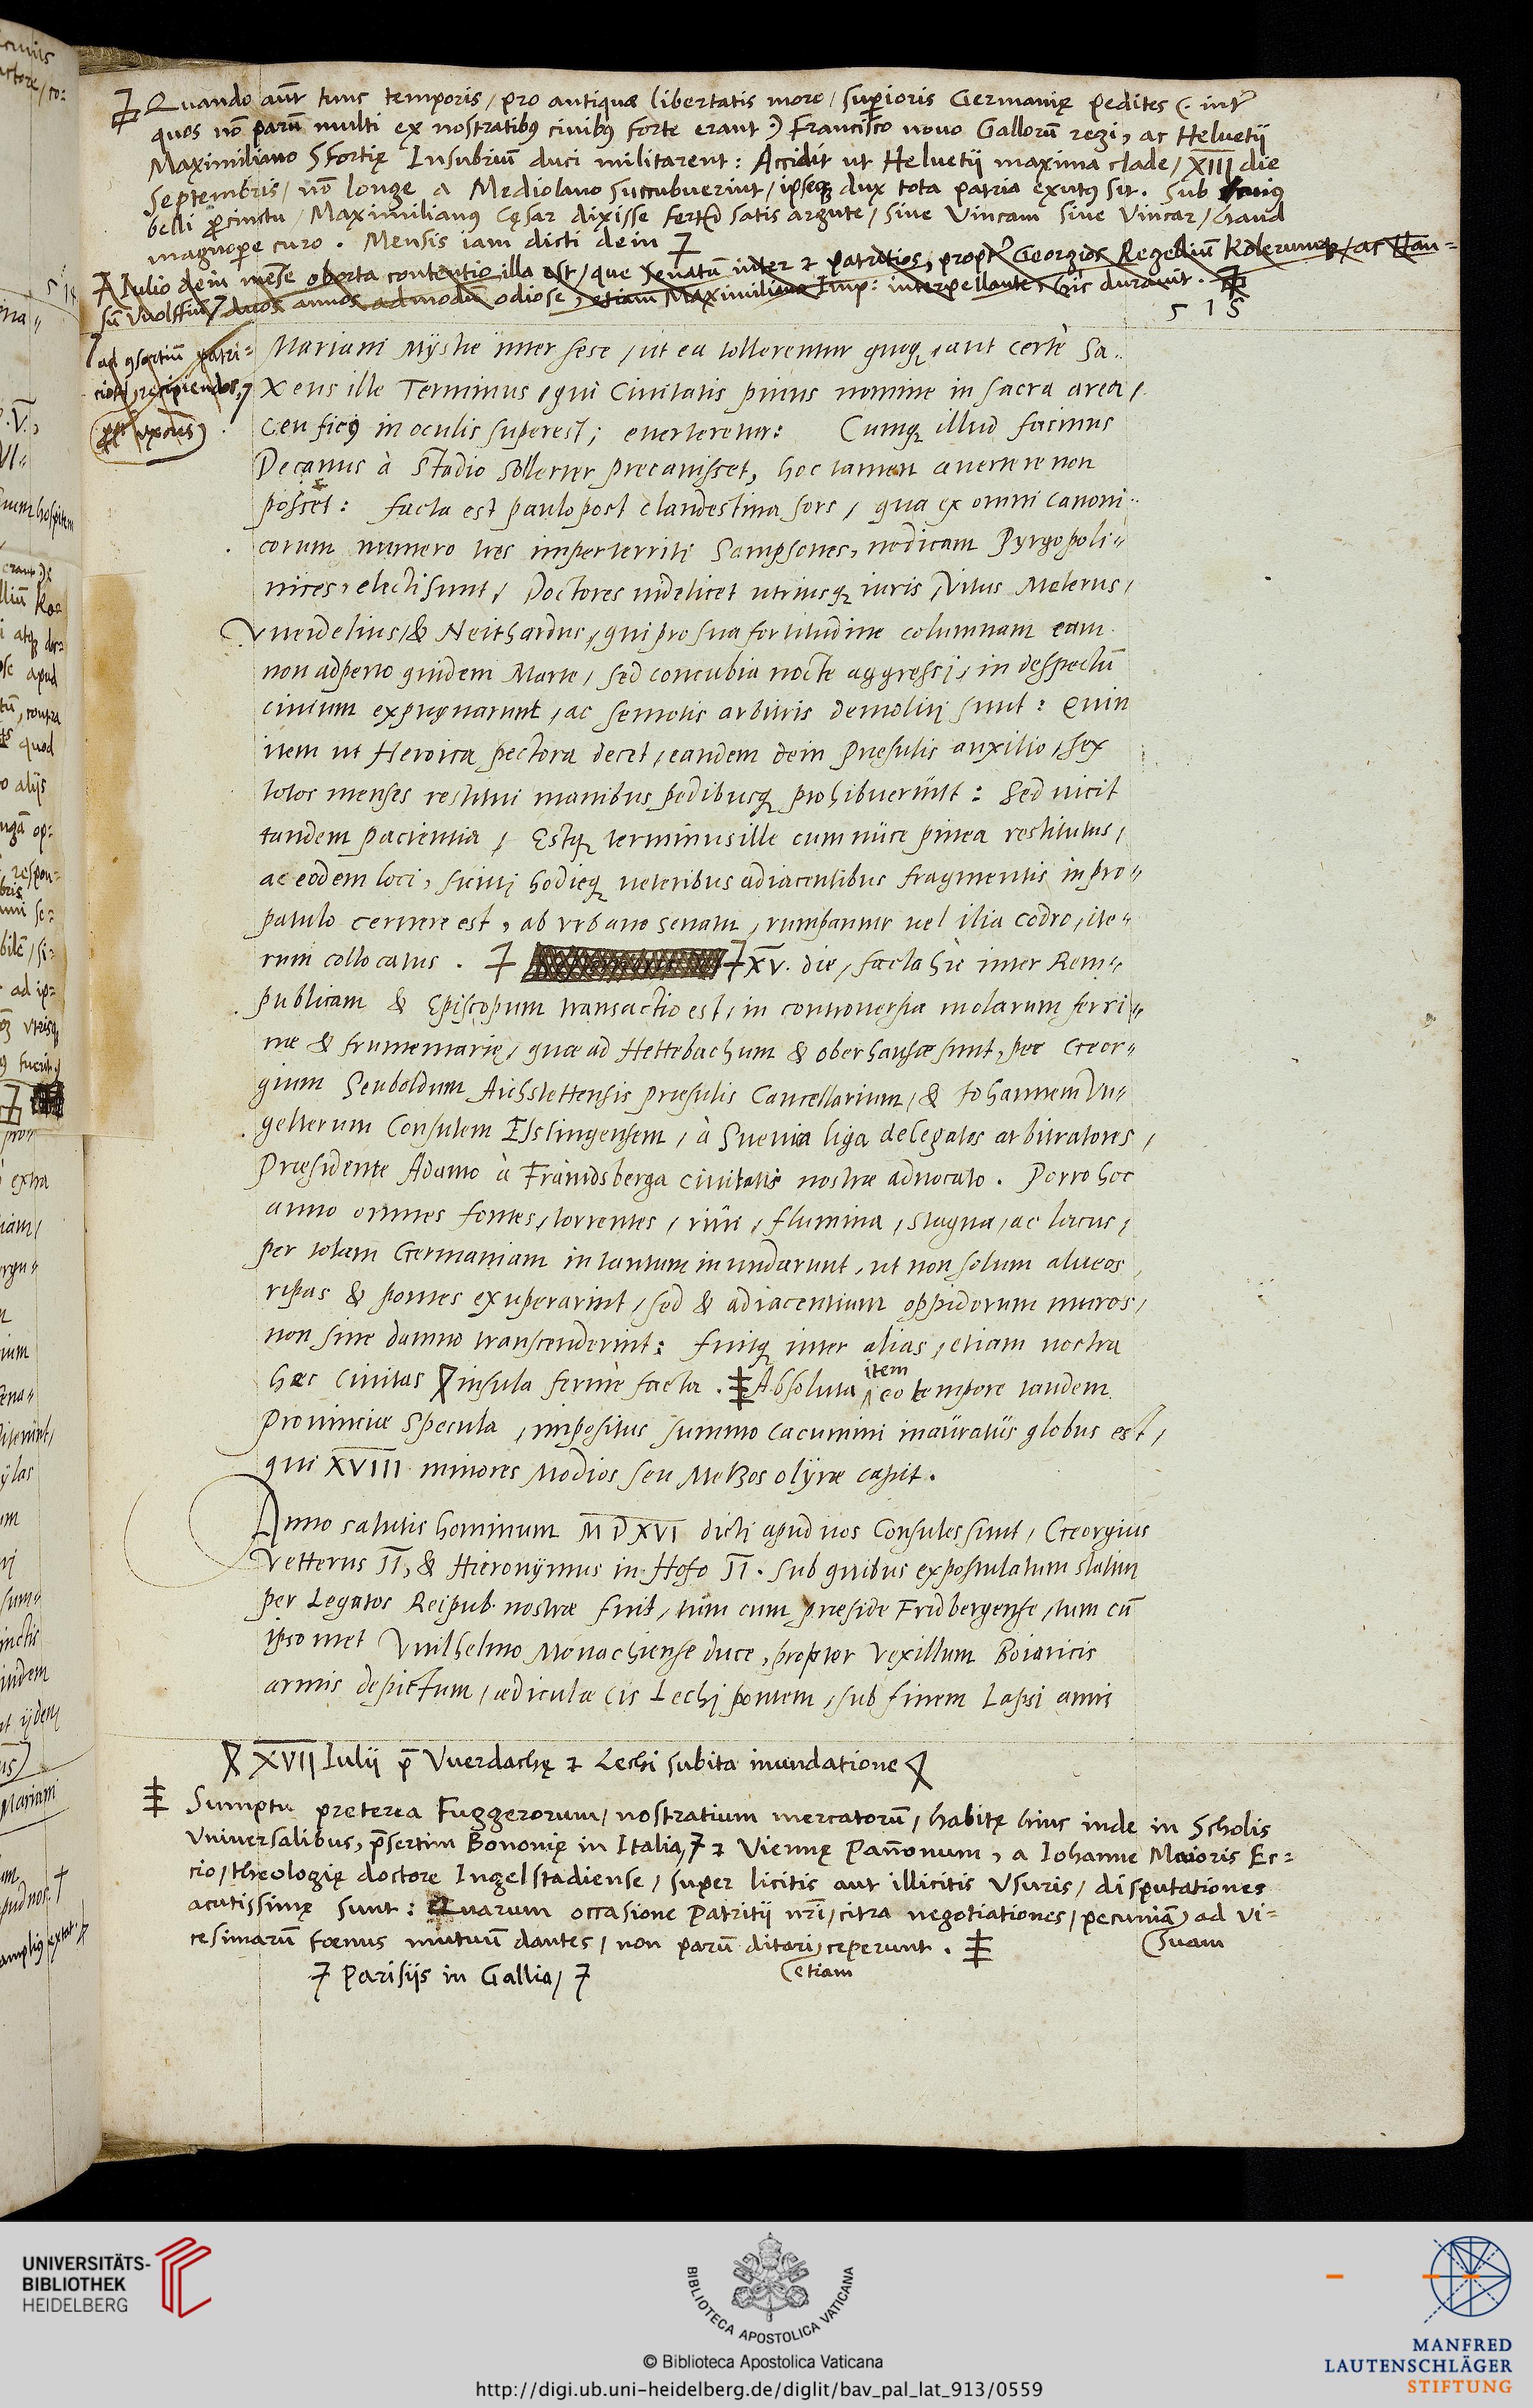 Quando aut̃ tunc temporis / pro antiquæ libertatis more / superioris Germanię pedites (. int̃
quos nõ parũ multi ex nostratibꝰ ciuibꝰ forte erant .) Francisco nouo Gallorũ regi, ac Heluetij
Maximiliano Sfortię Insubriũ duci militarent : Accidit ut Heluetij maxima clade / XIII die
Septembris / nõ longe a Mediolano succubuerint / ipseqꝫ dux tota patria exutꝰ sit. Sub cuiꝰ
belli ꝓcinctu / Maximilianꝰ Cęsar dixisse fert᷑ satis argute / siue Vincam siue Vincar / haud
magnopere curo . Mensis iam dicti dein
Iulio dein mẽse oborta contentio illa est / que Senatũ inter et patritios, propt̃ Georgiũs Regeliũ Kolerumqꝫ / ac Han=
sũ Vuolffiũ / duos annos admodũ odiose, etiam Maximiliano Imp: interpellante, hic durauit .
5 1 5
ad ↄsortiũ patri=
ciorũ recipiendos,
uxoris
Mariani Mystæ inter sese / ut ea tollerentur quoqꝫ, aut certè Sa..
xeus ille Terminus / qui Ciuitatis pinus nomine in sacra area /
ceu ficꝰ in oculis superest ; euerteretur : Cumqꝫ illud facinus
Decanus à Stadio sollerter precauisset, hoc tamen auertere non
posset : facta est paulo post clandestina sors / qua ex omni canoni..
corum numero tres imperterriti Sampsones, ne dicam Pyrgopoli=
nices, electi sunt / Doctores uidelicet utriusqꝫ iuris / Vitus Melerus /
Vuendelius / & Neithardus, qui pro sua fortitudine columnam eam
non adperto quidem Marte / sed concubia nocte aggressi, in despectũ
ciuium expugnarunt / ac semotis arbitris demoliti sunt : Quin
item ut Heroica pectora decet, eandem dein Præsulis auxilio / sex
totos menses restitui manibus pedibusqꝫ prohibuerunt : Sed uicit
tandem pacientia / Estqꝫ terminus ille cum nuce pinea restitutus /
ac eodem loci, sicuti hodieqꝫ ueteribus adiacentibus fragmentis in pro=
patulo cernere est, ab vrbano senatu, rumpantur uel ilia Codro / ite=
rum collocatus . XV. die, facta hic inter Rem=
publicam & Episcopum transactio est, in controuersia molarum ferri=
næ & frumentarię, quæ ad Hettebachum & oberhausæ sunt, per Geor=
gium Seuboldum Aichstettensis præsulis Cancellarium, & Iohannem Vn=
gelterum Consulem Esslingensem, à Sueuica liga delegatos arbitratores,
Præsidente Adamo à Frundsberga ciuitatis nostræ aduocato . Porro hoc
anno omnes fontes, torrentes, riui, flumina, stagna, ac lacus,
per totam Germaniam in tantum inundarunt, ut non solum alueos,
ripas & pontes exuperarint, sed & adiacentium oppidorum muros,
non sine damno transcenderint : fuitqꝫ inter alias, etiam nostra
hæc ciuitas insula fermè facta . Absoluta item eo tempore tandem
Prouinciæ specula, impositus summo cacumini inauratus globus est,
qui XVIII minores Modios seu Metzos olyræ capit.
Anno salutis hominum MDXVI dicti apud nos Consules sunt, Georgius
Vetterus II, & Hieronymus in Hofo II . Sub quibus expostulatum statim
per Legatos Reipub. nostræ fuit, tum cum præside Fridbergense, tum cũ
ipsomet Vuilhelmo Monachiense duce, propter vexillum Boiaricis
armis depictum, ædiculæ cis Lechi pontem, sub finem lapsi anni
XVII Iulii p̃ Vuerdachę et Lechi subita inundatione
Sumptu preterea Fuggerorum / nostratium mercatorũ / habitę hinc inde in Scholis
Vniuersalibus, p̃sertim Bononię in Italia, et Viennę Pañonum, a Iohanne Maioris Ec=
cio / theologię doctore Ingelstadiense / super licitis aut illicitis Vsuris / disputationes
acutissimę sunt : Quarum occasione Patritij nr̃i / citra negotiationes / pecuniã ad vi=
cesimarũ fœnus mutuũ dantes / non parũ ditari ceperunt . suam
Parisijs in Gallia / etiam
UNIVERSITÄTS-
BIBLIOTHEK
HEIDELBERG
BIBLIOTECA APOSTOLICA VATICANA
© Biblioteca Apostolica Vaticana
http://digi.ub.uni-heidelberg.de/diglit/bav_pal_lat_913/0559
MANFRED
LAUTENSCHLÄGER
STIFTUNG